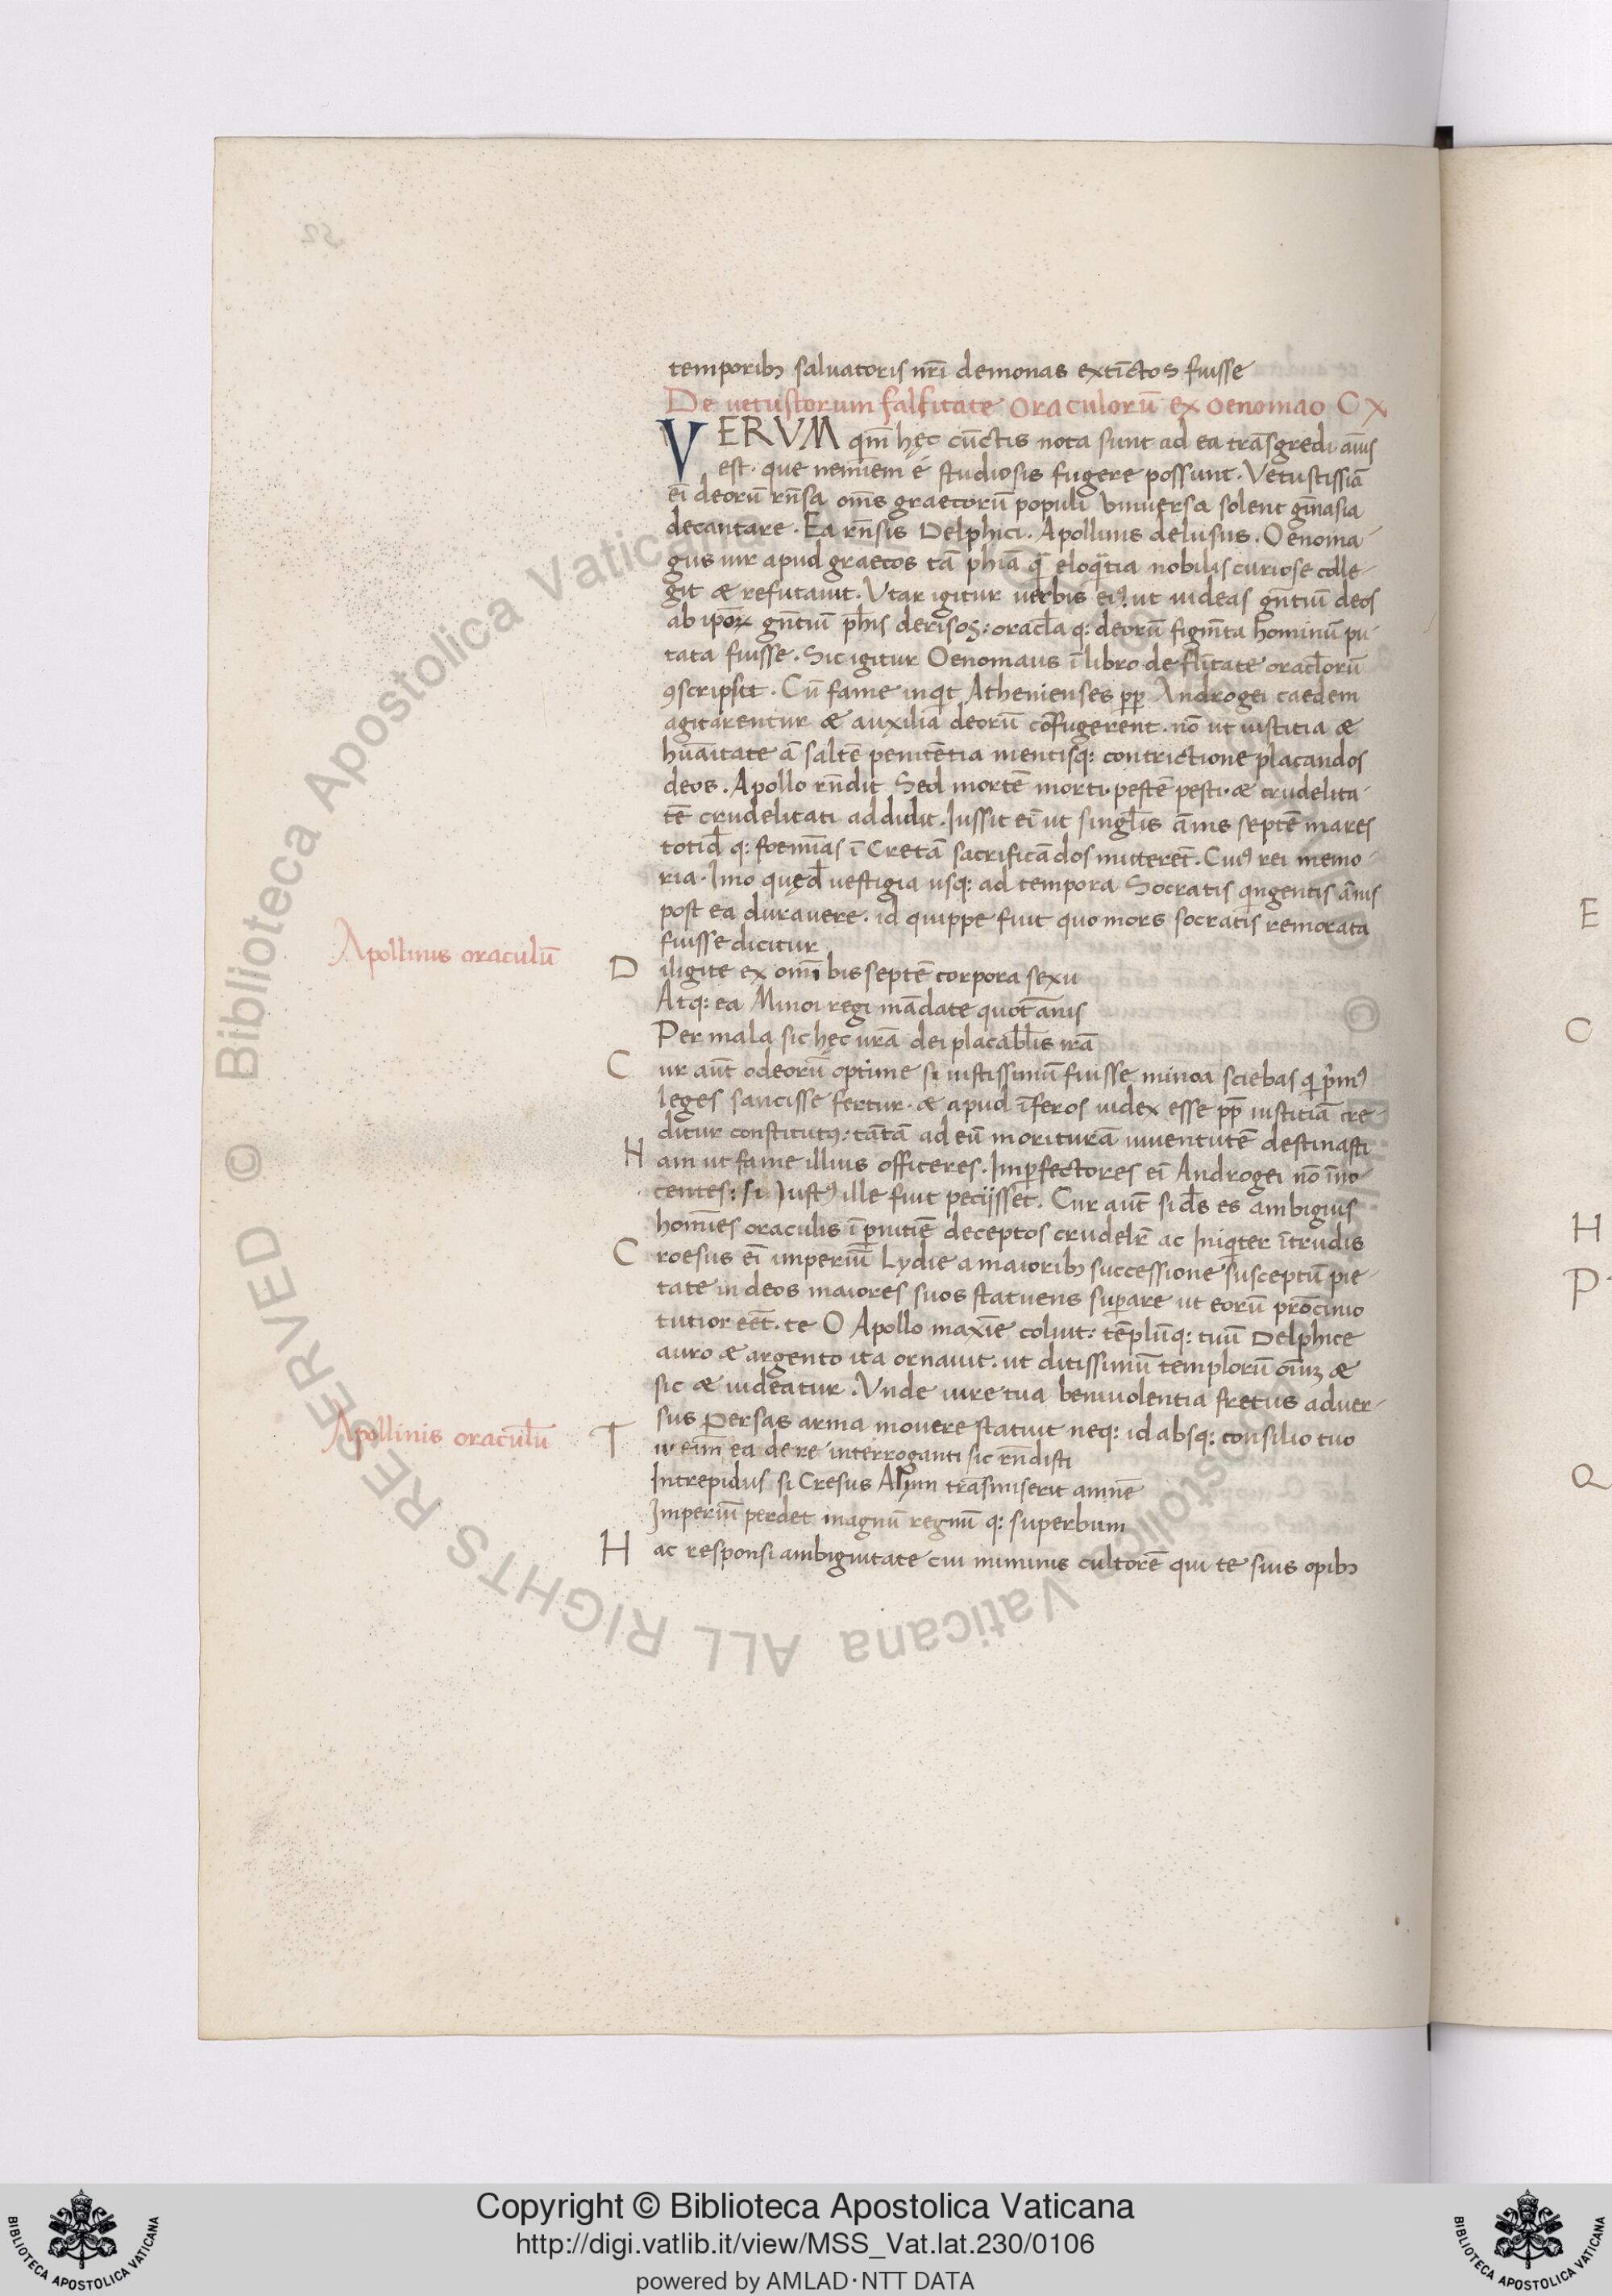 temporibꝫ saluatoris nr̄i demonas extīctos fuisse
De uetustorum falsitate oraculorū ex oenomao C X
VERVM qm̄ hęc cūctis nota sunt ad ea trāsgredi aīus
est. que neminem e studiosis fugere possunt. Vetustissīa
ei deorū rn̄sa om̄s graecorū populi vniuersa solent gīnasia
decantare. Ea rn̄sis Delphici. Apollinis delusus. Oenoma
gus uir apud graecos tā phīa q̄ eloq̄tia nobilis curiose colle
git & refutauit. Vtar igitur uerbis eiꝰ ut uideas gn̄tiū deos
ab ipōꝝ gn̄tiū ph̄is derisos: oracl̄a qꝫ deorū figm̄ta hominū pu
tata fuisse. Sic igitur Oenomaus ī libro de fl̄itate oracl̄orū
ꝯscripsit. Cū fame inqͥt Athenienses pp̄ Androgei caedem
agitarentur & auxilia deorū cōfugerent. nō ut iustitia &
hūaitate ā saltē penitētia mentisqꝫ contrictione placandos
deos. Apollo rn̄dit Sed mortē morti. pestē pesti. & crudelita
tē crudelitati addidit. Iussit eī ut singl̄is ānis septē mares
totid̄ qꝫ foemīas ī Cretā sacrificādos mitterēt. Cuiꝰ rei memo
ria. Imo quęd̄ uestigia usqꝫ ad tempora Socratis qͥngentis ānis
post ea durauere. id quippe fuit quo mors socratis remorata
fuisse dicitur
Apollinis oraculū
Diligite ex omī bis septē corpora sexu
Atqꝫ ea Minoi regi mādate quot ānis
Per mala sic hęc urā dei placabl̄is irā
Cur aūt o deorū optime si iustissimū fuisse minoa sciebas qͥ pͥmꝰ
leges sancisse fertur. & apud īferos iudex esse pp̄ iustitiā cre
ditur constitutꝰ: tātā ad eū morituram iuuentutē destinasti
Ham ut fame illius officeres. Imp̄fectores eī Androgei nō īno
centes: si iustꝰ ille fuit petijsset. Cur aūt si ds̄ es ambiguis
homīes oraculis ī ꝑnitiē deceptos crudelr̄ ac Iniqͥter ītrudis
Croesus eī imperiū Lydie a maioribꝫ successione susceptū pie
tate in deos maiores suos statuens suꝑare ut eorū prōcinio
tutior eēt. te O Apollo maxīe coluit: tēplūqꝫ tuū Delphice
auro & argento ita ornauit. ut ditissimū templorū oīuꝫ &
sic & uideatur. Vnde iure tua beniuolentia fretus aduer
sus Persas arma mouere statuit neqꝫ id absqꝫ consilio tuo
Apollinis oracul̄ū
Tu eim ea de re interroganti sic rn̄disti
Intrepidus si Cresus Alyn trāsmiserit amnē
Imperiū perdet magnū regnū qꝫ superbum
Hac responsi ambiguitate cui nimius cultorē qui te suis opibꝫ
E
C
H
P
Q
Copyright © Biblioteca Apostolica Vaticana
http://digi.vatlib.it/view/MSS_Vat.lat.230/0106
powered by AMLAD·NTT DATA
BIBLIOTECA APOSTOLICA VATICANA
BIBLIOTECA APOSTOLICA VATICANA
© Biblioteca Apostolica Vaticana ALL RIGHTS RESERVED